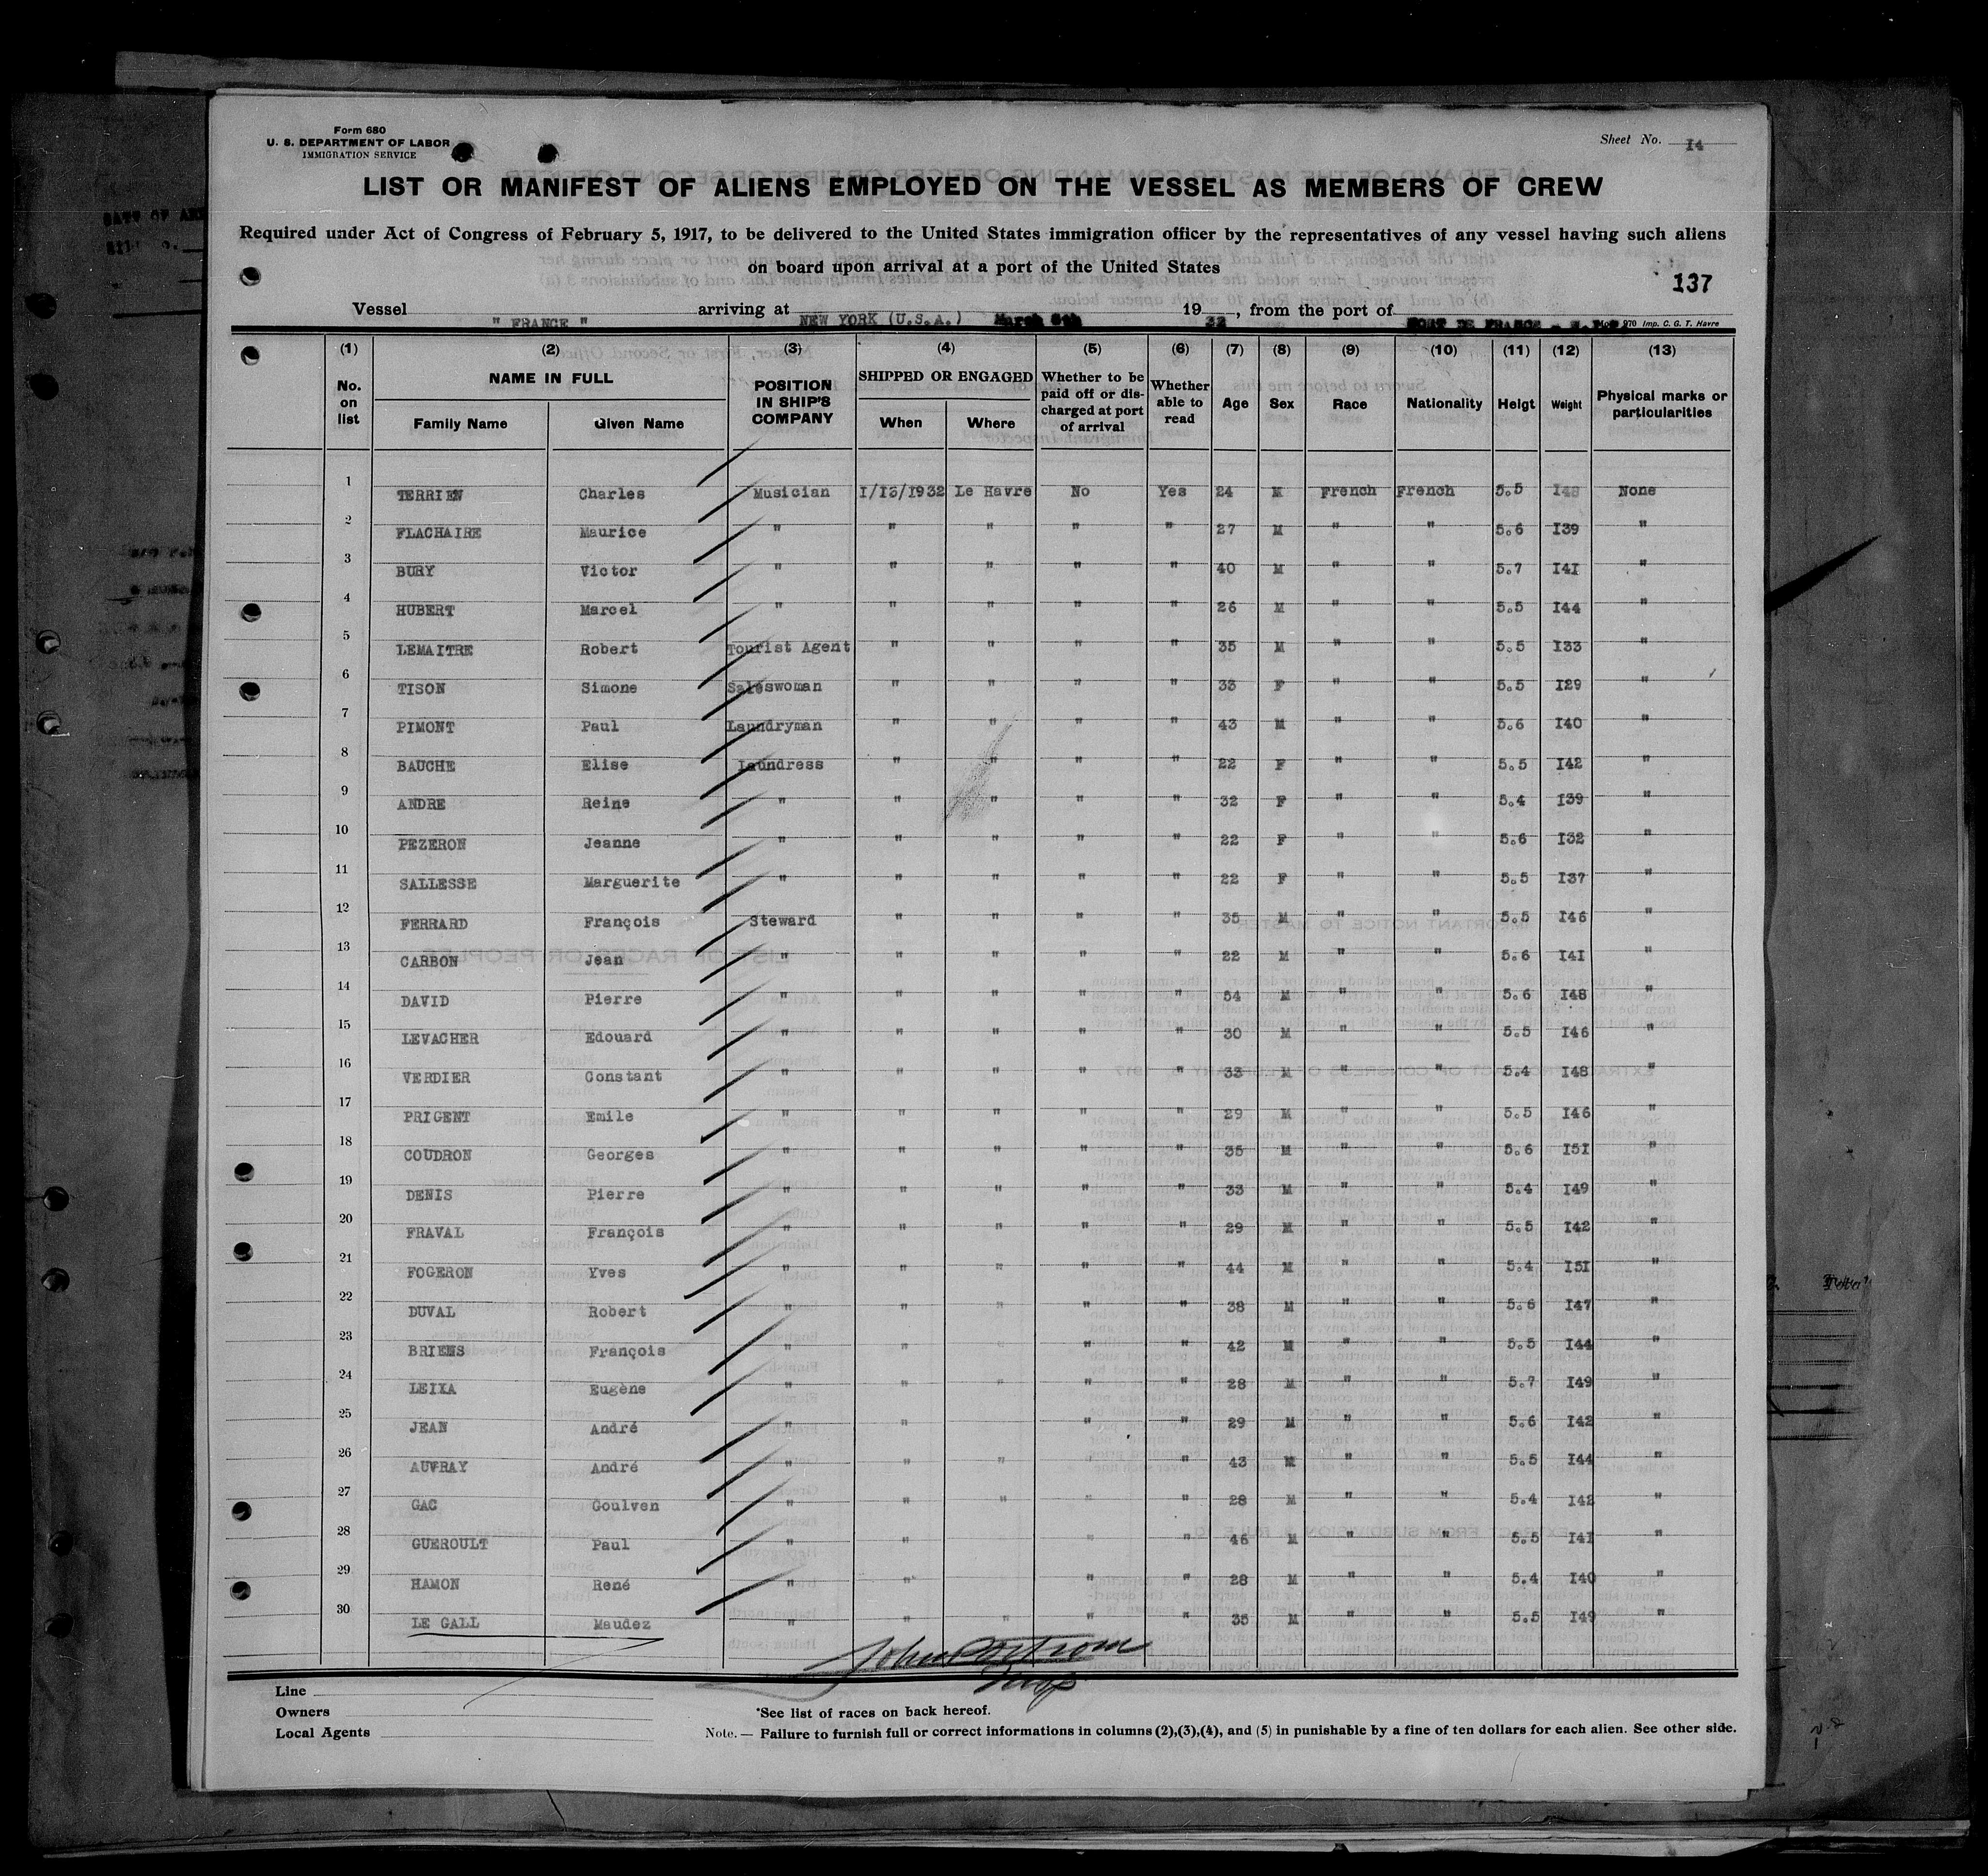 Form 680
U. S. DEPARTMENT OF LABOR
IMMIGRATION SERVICE
Sheet No. I4
LIST OR MANIFEST OF ALIENS EMPLOYED ON THE VESSEL AS MEMBERS OF CREW
Required under Act of Congress of February 5, 1917, to be delivered to the United States immigration officer by the representatives of any vessel having such aliens
on board upon arrival at a port of the United States
137
Vessel " FRANCE " arriving at NEW YORK (U.S.A.) March 1932, from the port of FORT DE FRANCE
Mod. 970 Imp. C. G. T. Havre
(1) (2) (3) (4) (5) (6) (7) (8) (9) (10) (11) (12) (13)
No. on list NAME IN FULL Family Name Given Name POSITION IN SHIP'S COMPANY SHIPPED OR ENGAGED When Where Whether to be paid off or discharged at port of arrival Whether able to read Age Sex Race Nationality Heigt Weight Physical marks or particularities
1 TERRIEN Charles Musician I/I3/1932 Le Havre No Yes 24 M French French 5.5 I48 None
2 FLACHAIRE Maurice " " " " " 27 M " " 5.6 I39 "
3 BURY Victor " " " " " 40 M " " 5.7 I4I "
4 HUBERT Marcel " " " " " 26 M " " 5.5 I44 "
5 LEMAITRE Robert Tourist Agent " " " " 35 M " " 5.5 I33 "
6 TISON Simone Saleswoman " " " " 33 F " " 5.5 I29 "
7 PIMONT Paul Laundryman " " " " 43 M " " 5.6 I40 "
8 BAUCHE Elise Laundress " " " " 22 F " " 5.5 I42 "
9 ANDRE Reine " " " " " 32 F " " 5.4 I39 "
10 PEZERON Jeanne " " " " " 22 F " " 5.6 I32 "
11 SALLESSE Marguerite " " " " " 22 F " " 5.5 I37 "
12 FERRARD François Steward " " " " 35 M " " 5.5 I46 "
13 CARBON Jean " " " " " 22 M " " 5.6 I4I "
14 DAVID Pierre " " " " " 54 M " " 5.6 I48 "
15 LEVACHER Edouard " " " " " 30 M " " 5.5 I46 "
16 VERDIER Constant " " " " " 33 M " " 5.4 I48 "
17 PRIGENT Emile " " " " " 29 M " " 5.5 I46 "
18 COUDRON Georges " " " " " 35 M " " 5.6 I5I "
19 DENIS Pierre " " " " " 33 M " " 5.4 I49 "
20 FRAVAL François " " " " " 29 M " " 5.5 I42 "
21 FOGERON Yves " " " " " 44 M " " 5.4 I5I "
22 DUVAL Robert " " " " " 38 M " " 5.6 I47 "
23 BRIENS François " " " " " 42 M " " 5.5 I44 "
24 LEIXA Eugène " " " " " 28 M " " 5.7 I49 "
25 JEAN André " " " " 29 M " " 5.6 I42 "
26 AUVRAY André " " " " " 43 M " " 5.5 I44 "
27 GAC Goulven " " " " " 28 M " " 5.4 I42 "
28 GUEROULT Paul " " " " 46 M " " 5.5 I4I "
29 HAMON René " " " " 28 M " " 5.4 I40 "
30 LE GALL Maudez " " " " " 35 M " " 5.5 I49 "
Line
Owners
Local Agents
*See list of races on back hereof.
Note. — Failure to furnish full or correct informations in columns (2),(3),(4), and (5) in punishable by a fine of ten dollars for each alien. See other side.